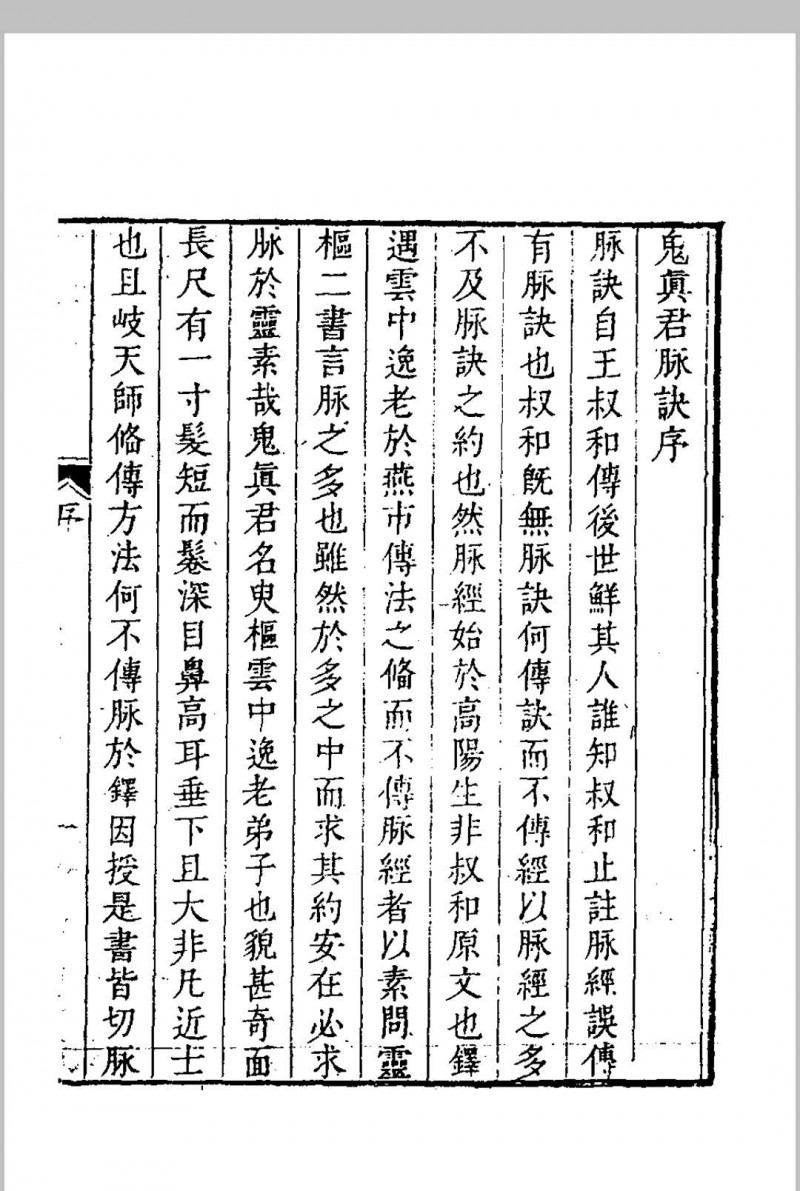 鬼眞君脉訣序
脉訣自王叔和傳後世鮮其人誰知叔和止註脉經誤傳
有脉訣也叔和旣無脉訣何傳訣而不傳經以脉經之多
不及脉訣之約也然脉經始於高陽生非叔和原文也鐸
遇雲中逸老於燕市傳法之俻而不傳脉經者以素問靈
樞二書言脉之多也雖然於多之中而求其約安在必求
脉於靈素哉鬼眞君名臾樞雲中逸老弟子也貌甚奇面
長尺有一寸髮短而鬈深目鼻高耳垂下且大非凡近士
也且岐天師俻傳方法何不傳脉於鐸因授是書皆切脉
序
一